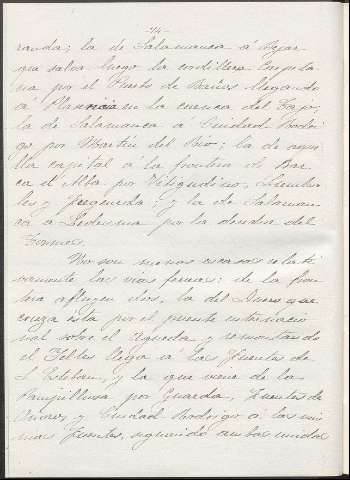 -74-
randa; la de Salamanca á Bejar
que salva luego la cordillera Carpeta-
na por el Puerto de Baños llegando
á Plasencia en la cuenca del Tajo;
la de Salamanca á Ciudad Rodri-
go por Martin del Rio; la de aque-
lla capital á la frontera de Bar-
ca d'Alba por Vitigudino, Lumbra-
les y Fregeneda; y la de Salaman-
ca á Ledesma por la derecha del
Tormes.
No son menos escasas relati-
vamente las vias ferreas: de la fron-
tera afluyen dos, la del Duero que
cruza esta por el puente internacio-
nal sobre el Agueda y remontando
el Yeltes llega á las Fuentes de
S. Esteban, y la que viene de la
Pampillosa por Guarda, Fuentes de
Oñoro, y Ciudad Rodrigo á las mis-
mas Fuentes, siguiendo ambas unidas